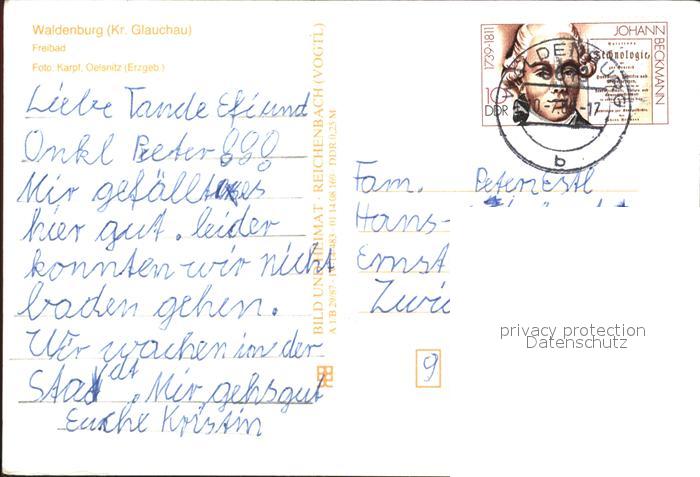 Waldenburg (Kr. Glauchau)
Freibad
Foto: Karpf, Oelsnitz (Erzgeb.)
Liebe Tande Efi und
Onkl Peter
Mir gefällt es
hier gut. leider
konnten wir nicht
baden gehen.
Wir wachen in der
Stadt. Mir gehs gut
Euche Kristin
BILD UND HEIMAT · REICHENBACH (VOGTL)
A 1/B 29/87 483 01 14 08 160 DDR 0,25 M
1739-1811
JOHANN
BECKMANN
Technologie
10
DDR
WALDENBURG
b
Fam. Peter Estl
Hans-
Ernst
Zwic
9
privacy protection
Datenschutz